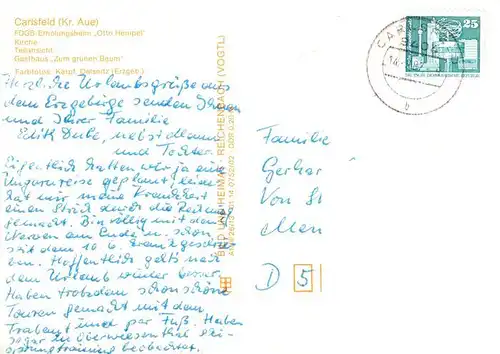 Carlsfeld (Kr. Aue)
FDGB-Erholungsheim „Otto Hempel“
Kirche
Teilansicht
Gasthaus „Zum grünen Baum“
Farbfotos: Kämpf, Oelsnitz (Erzgeb.)
Herzliche Urlaubsgrüße aus
dem Erzgebirge senden Ihnen
und Ihrer Familie
Edith nebst Mann
und Tochter.
Eigentlich hatten wir ja eine
Ungarnreise geplant, leider
hat mir meine Krankheit
einen Strich durch die Rechnung
gemacht. Bin völlig mit den
Nerven am Ende u. schon
seit dem 10. 6. krankgeschrie-
ben. Hoffentlich geht's nach
dem Urlaub wieder besser.
Haben trotzdem schon schöne
Touren gemacht mit dem
Trabant und per Fuß. Haben
sogar in Oberwiesenthal Ski-
sprungtraining beobachtet.
BILD UND HEIMAT REICHENBACH (VOGTL)
25
b
Familie
Gerhar
Von St
D 5